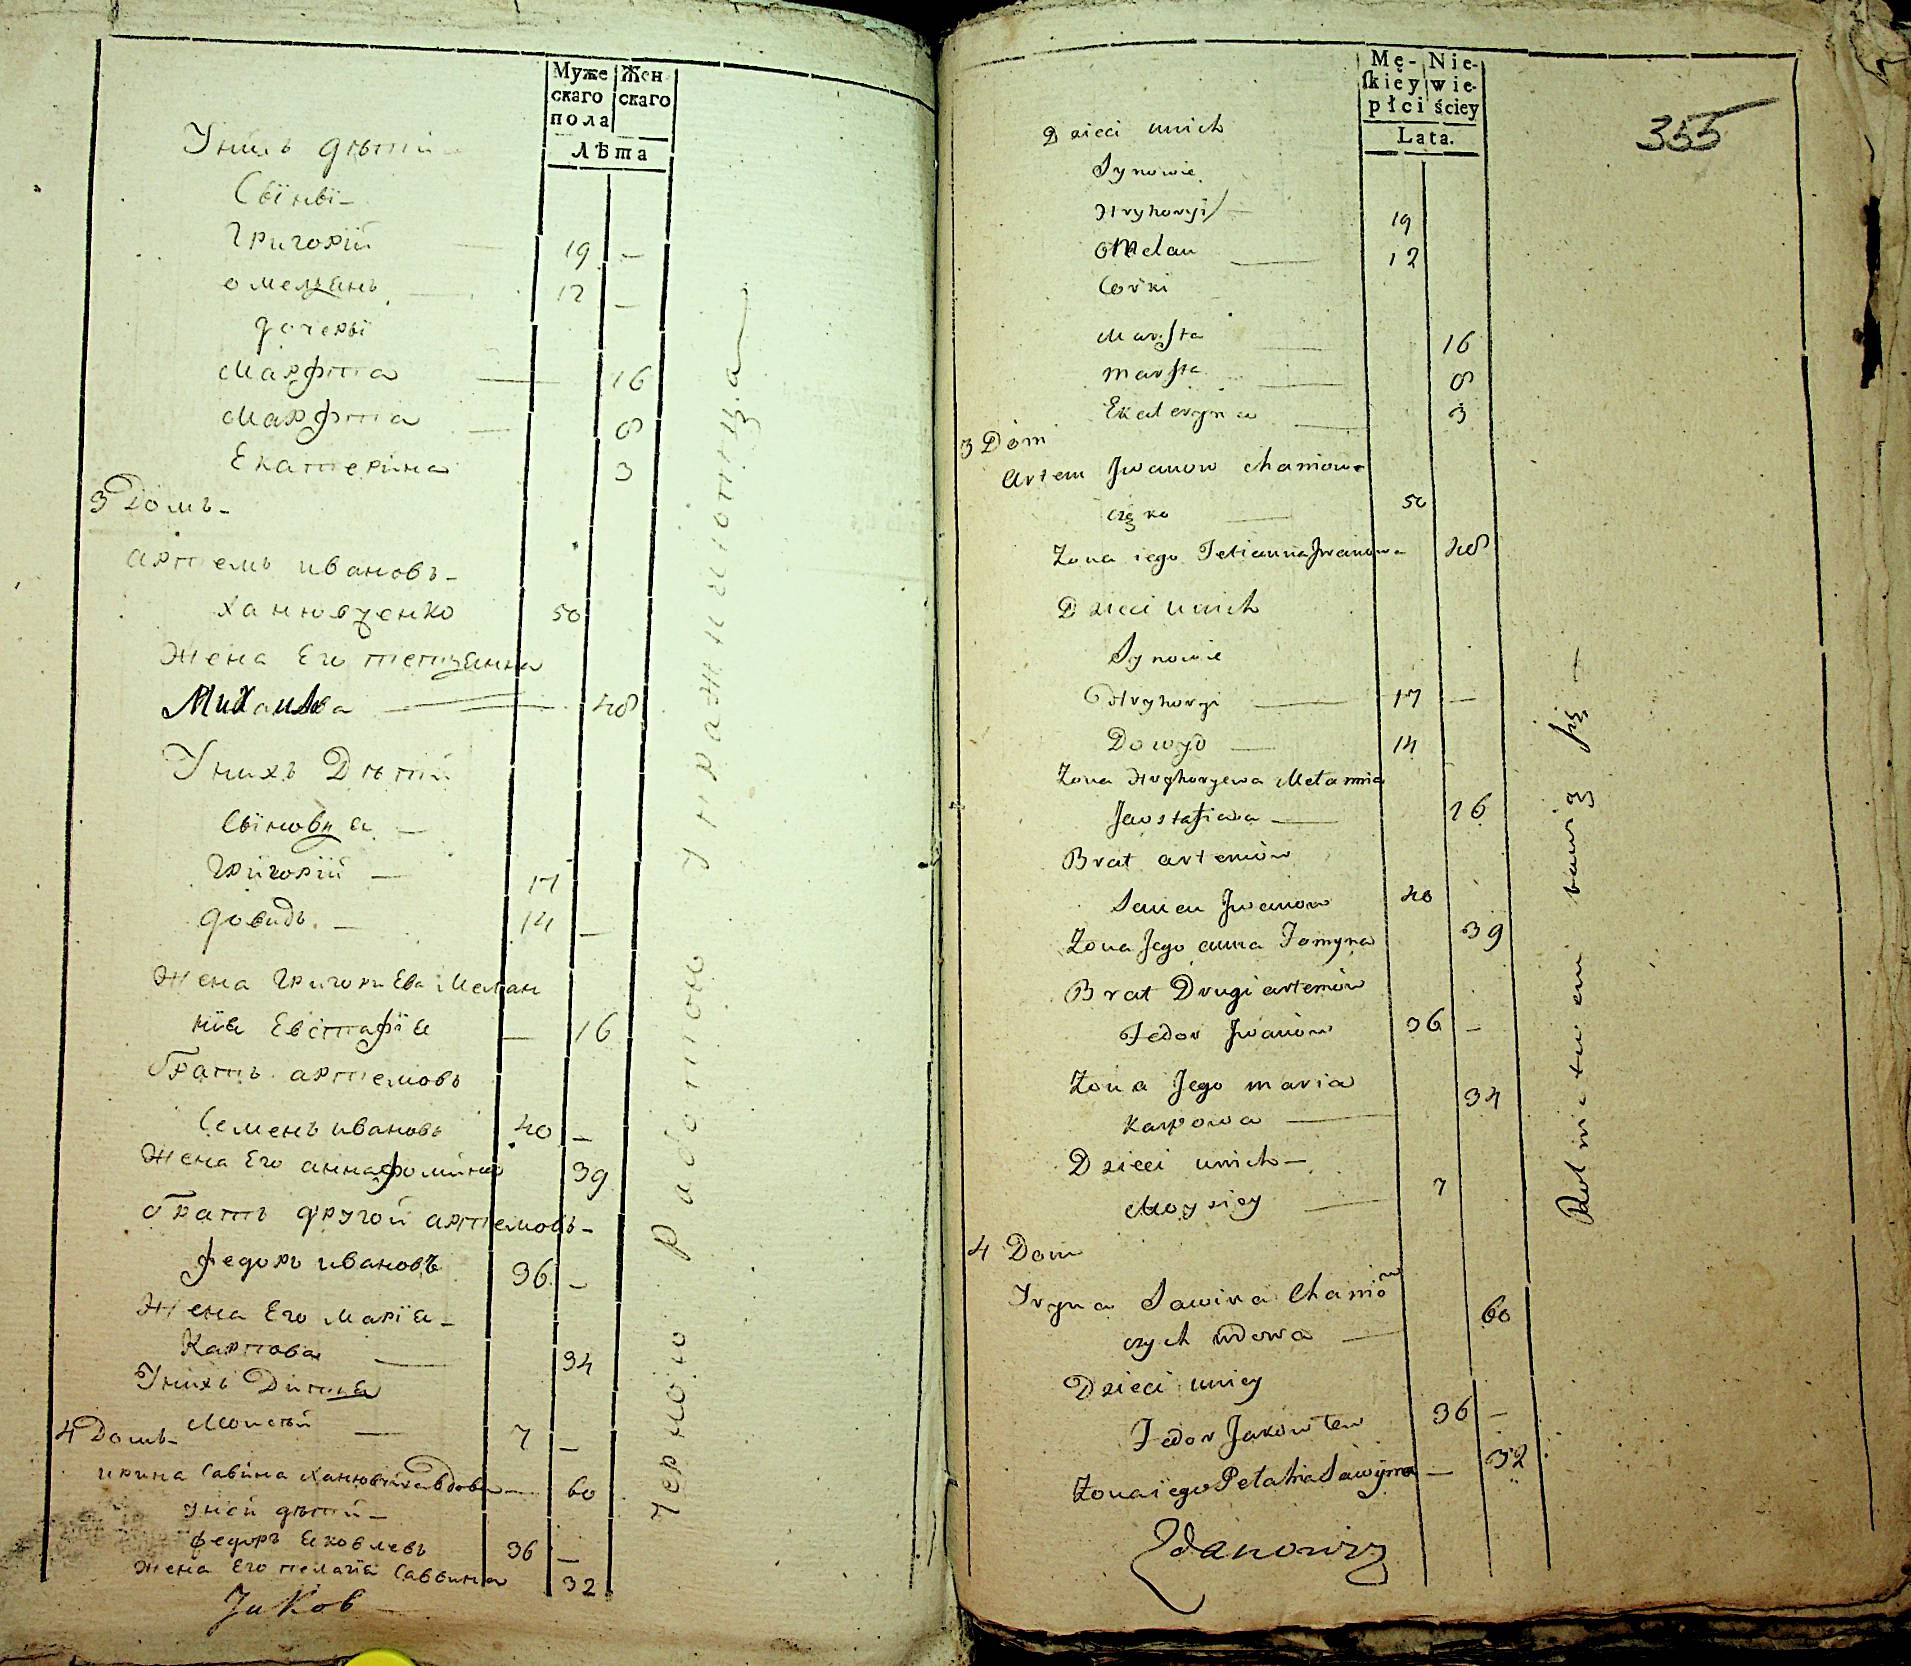 Муже
скаго
пола
Жен
скаго
Лѣта
Унихъ дѣтй
Сыны
Григорїй 19 –
омельянъ 12 –
дочеры
Марфта 16
Марфта 8
Екатерина 3
3 Домъ
артемъ ивановъ
ханювченко 50
Жена Его тетяанна
Михаилова 48
Унихъ Дѣтй
Сыновя
Григорїй 17
довидъ 14 –
Жена Григориева Мелан
нїя Евстафїя 16
братъ артемовъ
Семенъ ивановъ 40 –
Жена Его анна фомина 39
братъ другой артемовъ
федоръ ивановъ 36 –
Жена Его Марїя
Карпова 34
Унихъ Дитя
Моисѣй 7 –
4 Домъ
ирина Савина Ханювчиха вдова 60
Уней дѣтй
федоръ Яковлевъ 36 –
Жена Его пелагїя Саввина 32
Яков
Черною работою упражнаются
Mę-
ſkiey
płci
Nie-
wie-
ściey
Lata.
355
Dzieci unich
Synowie
Hryhoryi 19
Omelan 12
Corki
Marfta 16
Marfta 8
Ekateryna 3
3 Dom
Artem Iwanow Chaniow
częko 50
Zona iego Tetianna Iwanowa 48
Dzieci unich
Synowie
Hryhoryi 17 –
Dowyd 14
Zona Hryhoryewa Melannia
Jewstafiewa 16
Brat artemów
Semen Iwanow 40
Zona Jego anna Fomyna 39
Brat Drugi artemów
Fedor Iwanów 36 –
Zona Jego maria
Karpowa 34
Dzieci unich
Moysiey 7
4 Dom
Iryna Sawina Chanió
czych wdowa 60
Dzieci uniey
Fedor Jakowlew 36 –
Zona iego Pelahia Sawyna 32
Zdanowicz
Rolnictwem bawią się